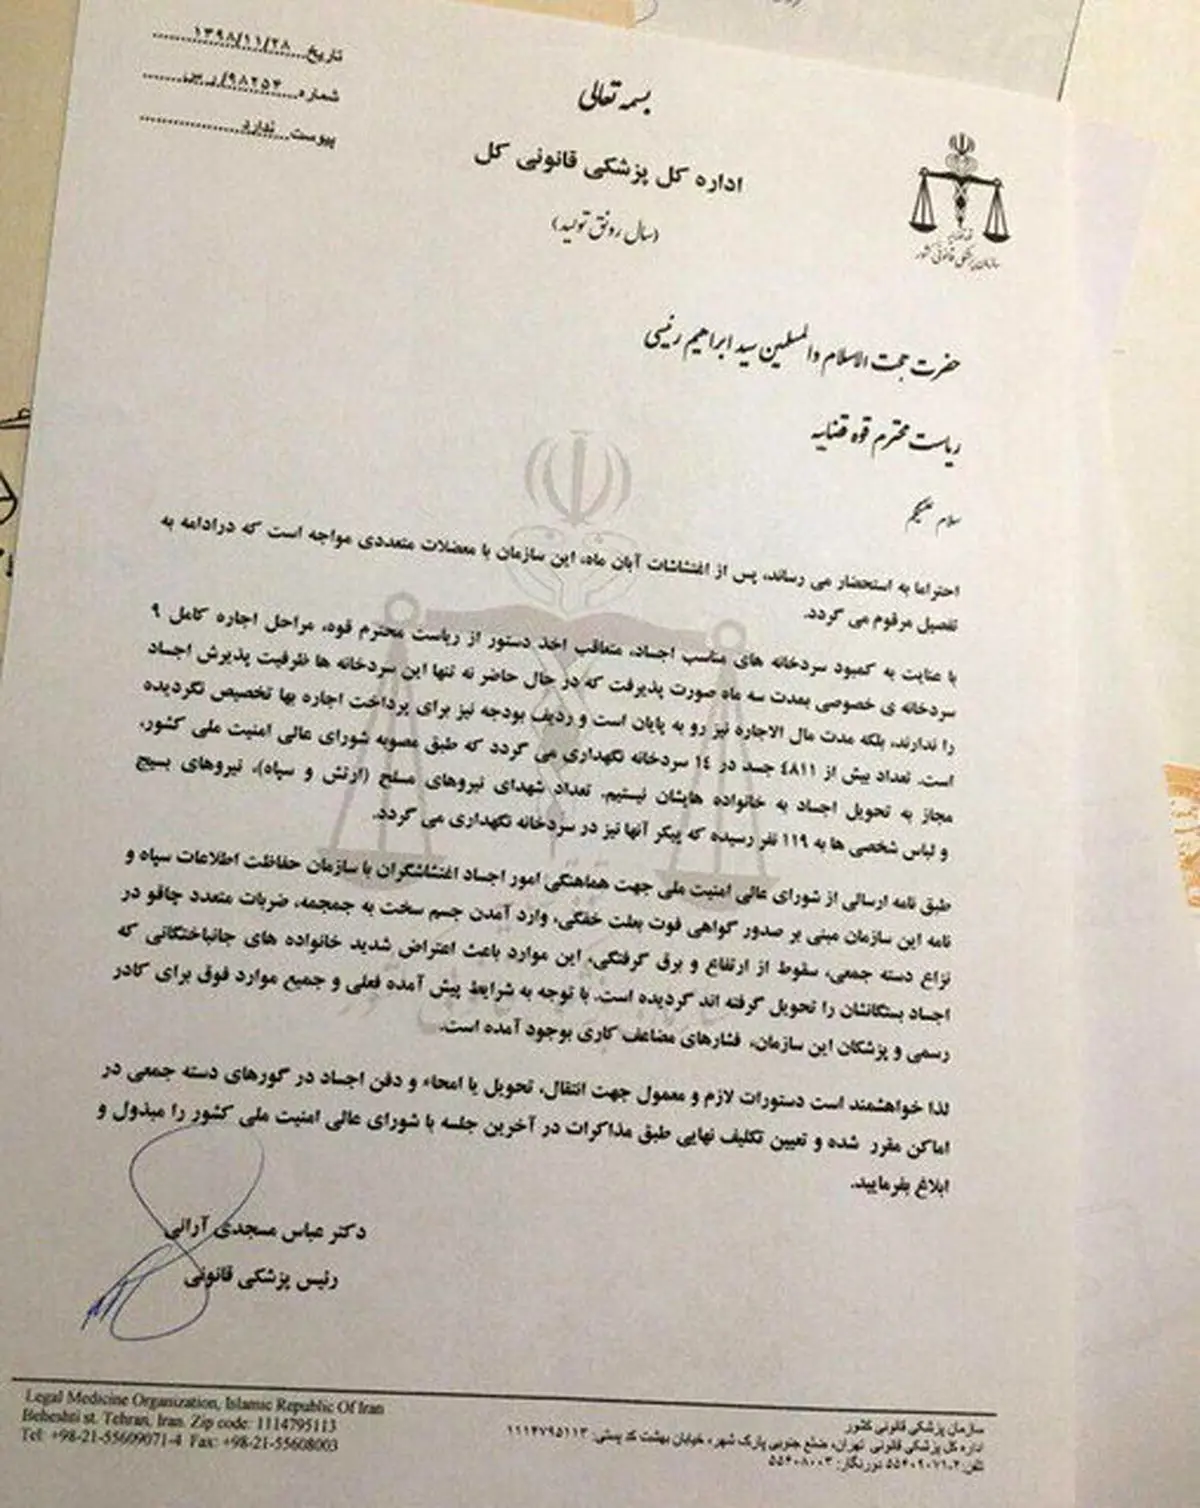 تاریخ ۱۳۹۸/۱۱/۲۸
شماره ۹۸۲۵۴/ر س
پیوست ندارد
بسمه تعالی
اداره کل پزشکی قانونی کل
(سال رونق تولید)
قوه قضاییه
سازمان پزشکی قانونی کشور
حضرت حجت الاسلام والمسلمین سید ابراهیم رئیسی
ریاست محترم قوه قضاییه
سلام علیکم
احتراما به استحضار می رساند، پس از اغتشاشات آبان ماه، این سازمان با معضلات متعددی مواجه است که درادامه به
تفصیل مرقوم می گردد.
با عنایت به کمبود سردخانه های مناسب اجساد، متعاقب اخذ دستور از ریاست محترم قوه، مراحل اجاره کامل ۹
سردخانه ی خصوصی بمدت سه ماه صورت پذیرفت که در حال حاضر نه تنها این سردخانه ها ظرفیت پذیرش اجساد
را ندارند، بلکه مدت مال الاجاره نیز رو به پایان است و ردیف بودجه نیز برای پرداخت اجاره بها تخصیص نگردیده
است. تعداد بیش از ٤٨١١ جسد در ١٤ سردخانه نگهداری می گردد که طبق مصوبه شورای عالی امنیت ملی کشور،
مجاز به تحویل اجساد به خانواده هایشان نیستیم. تعداد شهدای نیروهای مسلح (ارتش و سپاه)، نیروهای بسیج
و لباس شخصی ها به ۱۱۹ نفر رسیده که پیکر آنها نیز در سردخانه نگهداری می گردد.
طبق نامه ارسالی از شورای عالی امنیت ملی جهت هماهنگی امور اجساد اغتشاشگران با سازمان حفاظت اطلاعات سپاه و
نامه این سازمان مبنی بر صدور گواهی فوت بعلت خفگی، وارد آمدن جسم سخت به جمجمه، ضربات متعدد چاقو در
نزاع دسته جمعی، سقوط از ارتفاع و برق گرفتگی، این موارد باعث اعتراض شدید خانواده های جانباختگانی که
اجساد بستگانشان را تحویل گرفته اند گردیده است. با توجه به شرایط پیش آمده فعلی و جمیع موارد فوق برای کادر
رسمی و پزشکان این سازمان، فشارهای مضاعف کاری بوجود آمده است.
لذا خواهشمند است دستورات لازم و معمول جهت انتقال، تحویل یا امحاء و دفن اجساد در گورهای دسته جمعی در
اماکن مقرر شده و تعیین تکلیف نهایی طبق مذاکرات در آخرین جلسه با شورای عالی امنیت ملی کشور را مبذول و
ابلاغ بفرمایید.
دکتر عباس مسجدی آرانی
رئیس پزشکی قانونی
Legal Medicine Organization, Islamic Republic Of Iran
Beheshti st. Tehran, Iran. Zip code: 1114795113
Tel: +98-21-55609071-4 Fax: +98-21-55608003
سازمان پزشکی قانونی کشور
اداره کل پزشکی قانونی تهران، ضلع جنوبی پارک شهر، خیابان بهشت کد پستی: ۱۱۱۴۷۹۵۱۱۳
تلفن: ۲-۵۵۶۰۹۰۷۱ دورنگار: ۵۵۶۰۸۰۰۳